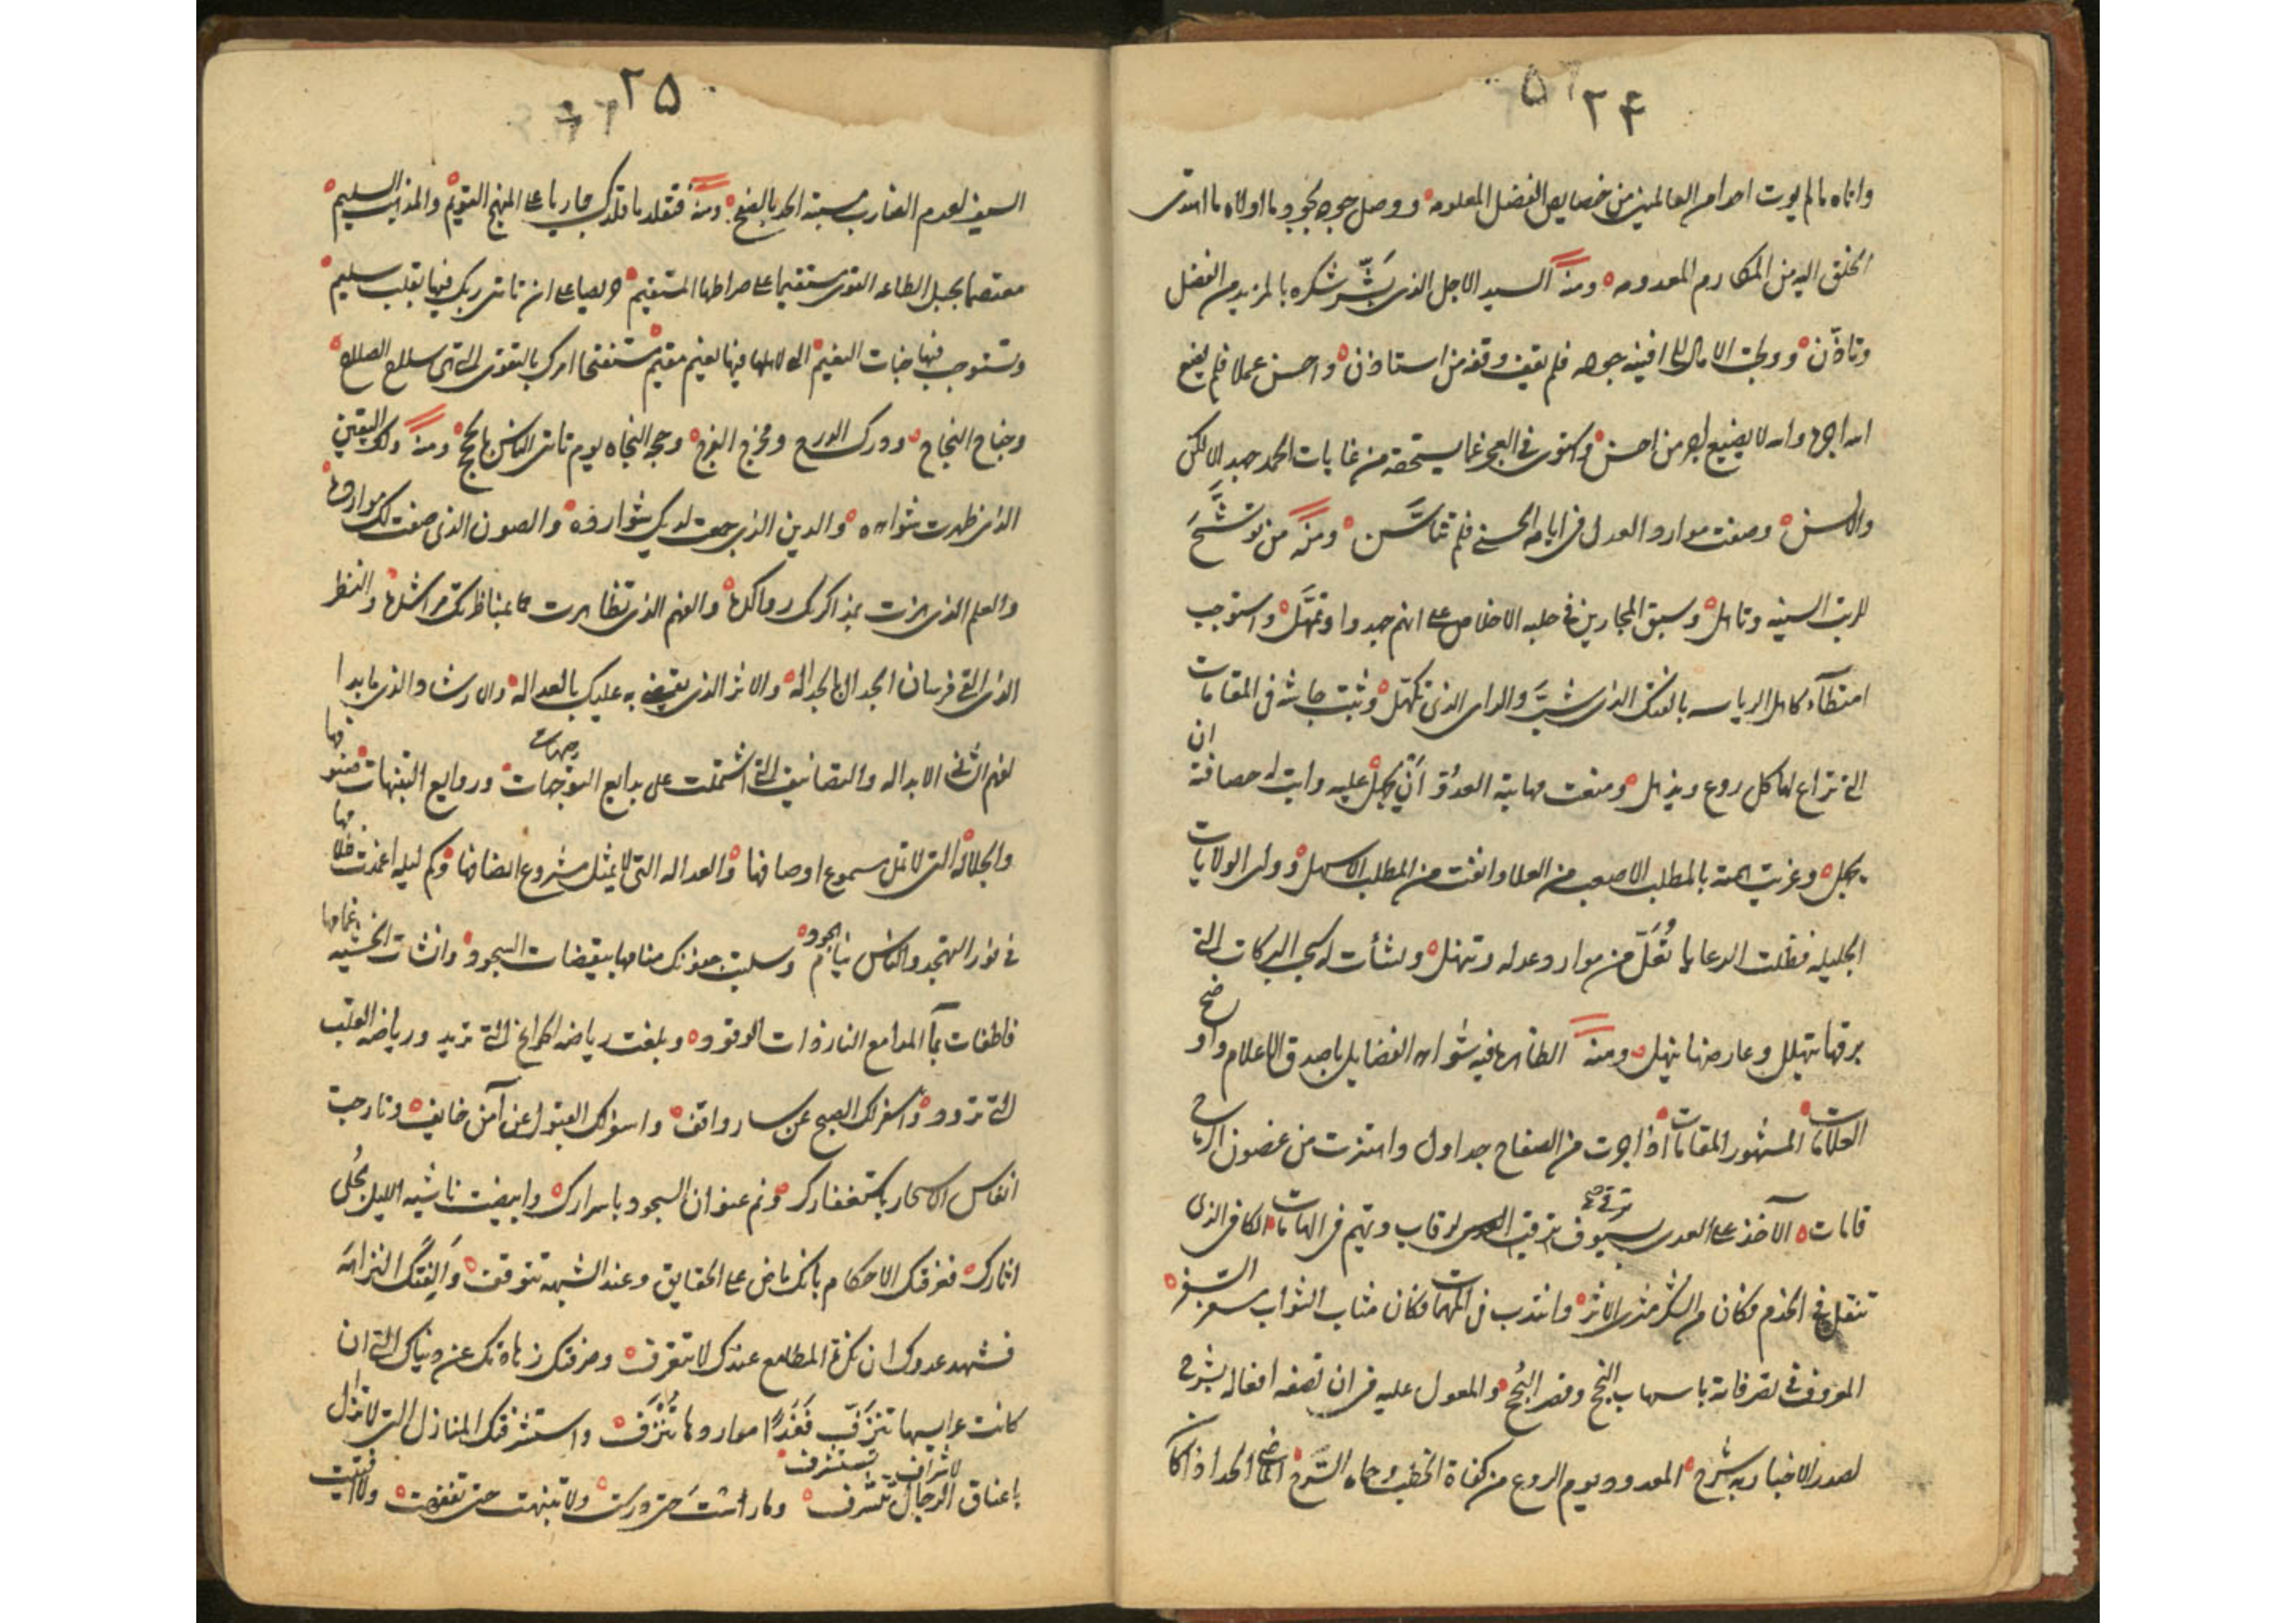 ٢٤
واتاه ما لم يوت احدا من العالمين من خصايص الفضل المعلومه ووصل جوده بجود وما اولاه ما اهتدى
الخلق اليه من المكارم المعدومه ومنه السيد الاجل الذى بَشَّر شكره بالمزيد من الفضل
وتاذّن وولجت الامال الى افنيه جوده فلم يقف وقفه من استاذن واحسن عملا فلم يضع
الله اجره والله لا يضيع اجر من احسن في العجز عما يستحقه من غايات الحمد جهد الالكن
والالسن وصفت موارد العدل فى ايامه الحسنى فلم تتاسَّن ومنه من توشَّحَ
للرتب السنيه وتاهل وسبق المجارين فى حلبه الاخلاص على انهم جهدوا وتمهَّل واستوجب
امتطآء كاهل الرياسه بالفتك الذى شبَّ والراى الذى تكهّل وثبت جاشه فى المقامات
التى تراع لها كل روع ويذهل ومنعت مهابته العدوّ ان يجهل عليه وابت له حصافته ان
يجهل وغريت همته بالمطلب الاصعب من العلا وانفت من المطلب الاسهل وولى الولايات
الجليله فظلت الرعايا تُعَلّ من موارد عدله وتنهل ونشأت له سحب البركات التى
برقها يتهلل وعارضها ينهل ومنه الظاهره فيه شواهد الفضايل باصدق الاعلام واوضح
العلامات المشهور المقامات اذا اجرت من الصفاح جداول واهتزت من غصون الرماح
قامات الآخذ على العدى بسيوف ترقى الرقاب وتهيم فى الهامات الكافى الذى
تنقل فى الخدم فكان من الشكر مثرى الاثر وانتدب فى المهمات فكان مثاب الثواب سعر
المعروف فى تصرفاته باسهاب النجح وقصر النُجح والمعول عليه فى ان تصفه افعاله بشرح
لصدر الاخبار به شرح المعدود يوم الروع من كفاة الخطب وحماه السَّرح الماضى الحد اذا كان
٢٥
السيف لعدم الضارب مسبته الحد بالصفح ومنه فتقلد ما قلدك جاريا على المنهج القويم والمذهب السليم
معتصما بحبل الطاعه القوى مستقيما على صراطها المستقيم حريصا على ان تاتى ربك فيها بقلب سليم
وتستوجب فيها جنات النعيم التى لاهلها فيها نعيم مقيم مستفتحا امرك بالتقوى التى هى سلاح الصلاح
وجناح النجاح ودرك الورع ومخرج الفرج وحجه النجاه يوم تاتى الناس بالحجج ومنه ولك اليقين
الذى ظهرت شواهده والدين الذى جمعت لديك شوارده والصون الذى صفت لك موارده
والعلم الذى هزت بمذاكرتك رواكدها والفهم الذى تظاهرت بمناظرتك مراشدها والنظر
الذى القى فرسان الجدال بالجداله والاثر الذى يقضى به عليك بالعداله والارشاد الذى ما بدا
لفهم الثنى الا بدا له والتصانيف التى اشتملت على بدايع التوجهات وروايع التنبيهات
والجلاله التى لا تمل سموع اوصافها والعداله التى لا يمثل مشروع انصافها وكم ليله اغمدت
فى نور التهجد والناس نيام هجود وسلبت جفونك منامها بيقضات السجود وانشات الخشيه غمامها
فاطفات بمآ المدامع النار ذات الوقود وبلغت رياضه الجوارح التى تريد ورياضه القلب
التى ترود واسفر لك الصبح عن سار واقف واسفر لك القبول عن آمن خايف وتارجت
انفاس الاسحار باستغفارك ونم عنوان السجود باسرارك وابيضت ناشيه الليل بحُلى
انارك فعرفتك الاحكام بانك ماض على الحقايق وعند الشبهه تتوقف وَاَلِفَتْكَ النزاهَه
فشهد عدوك ان نكرة المطامع عندك لا تتعرف وصرفتك زهادتك عن دنياك التى ان
كانت عرايسها تتزفّ فَغَدًا مواردها تُنْزَف واستشرفتك المنازل التى لا تزال
باعناق الرجال تتشرف وما راشت حتى درست ولا تنبهت حتى تفقهت ولا افتيت